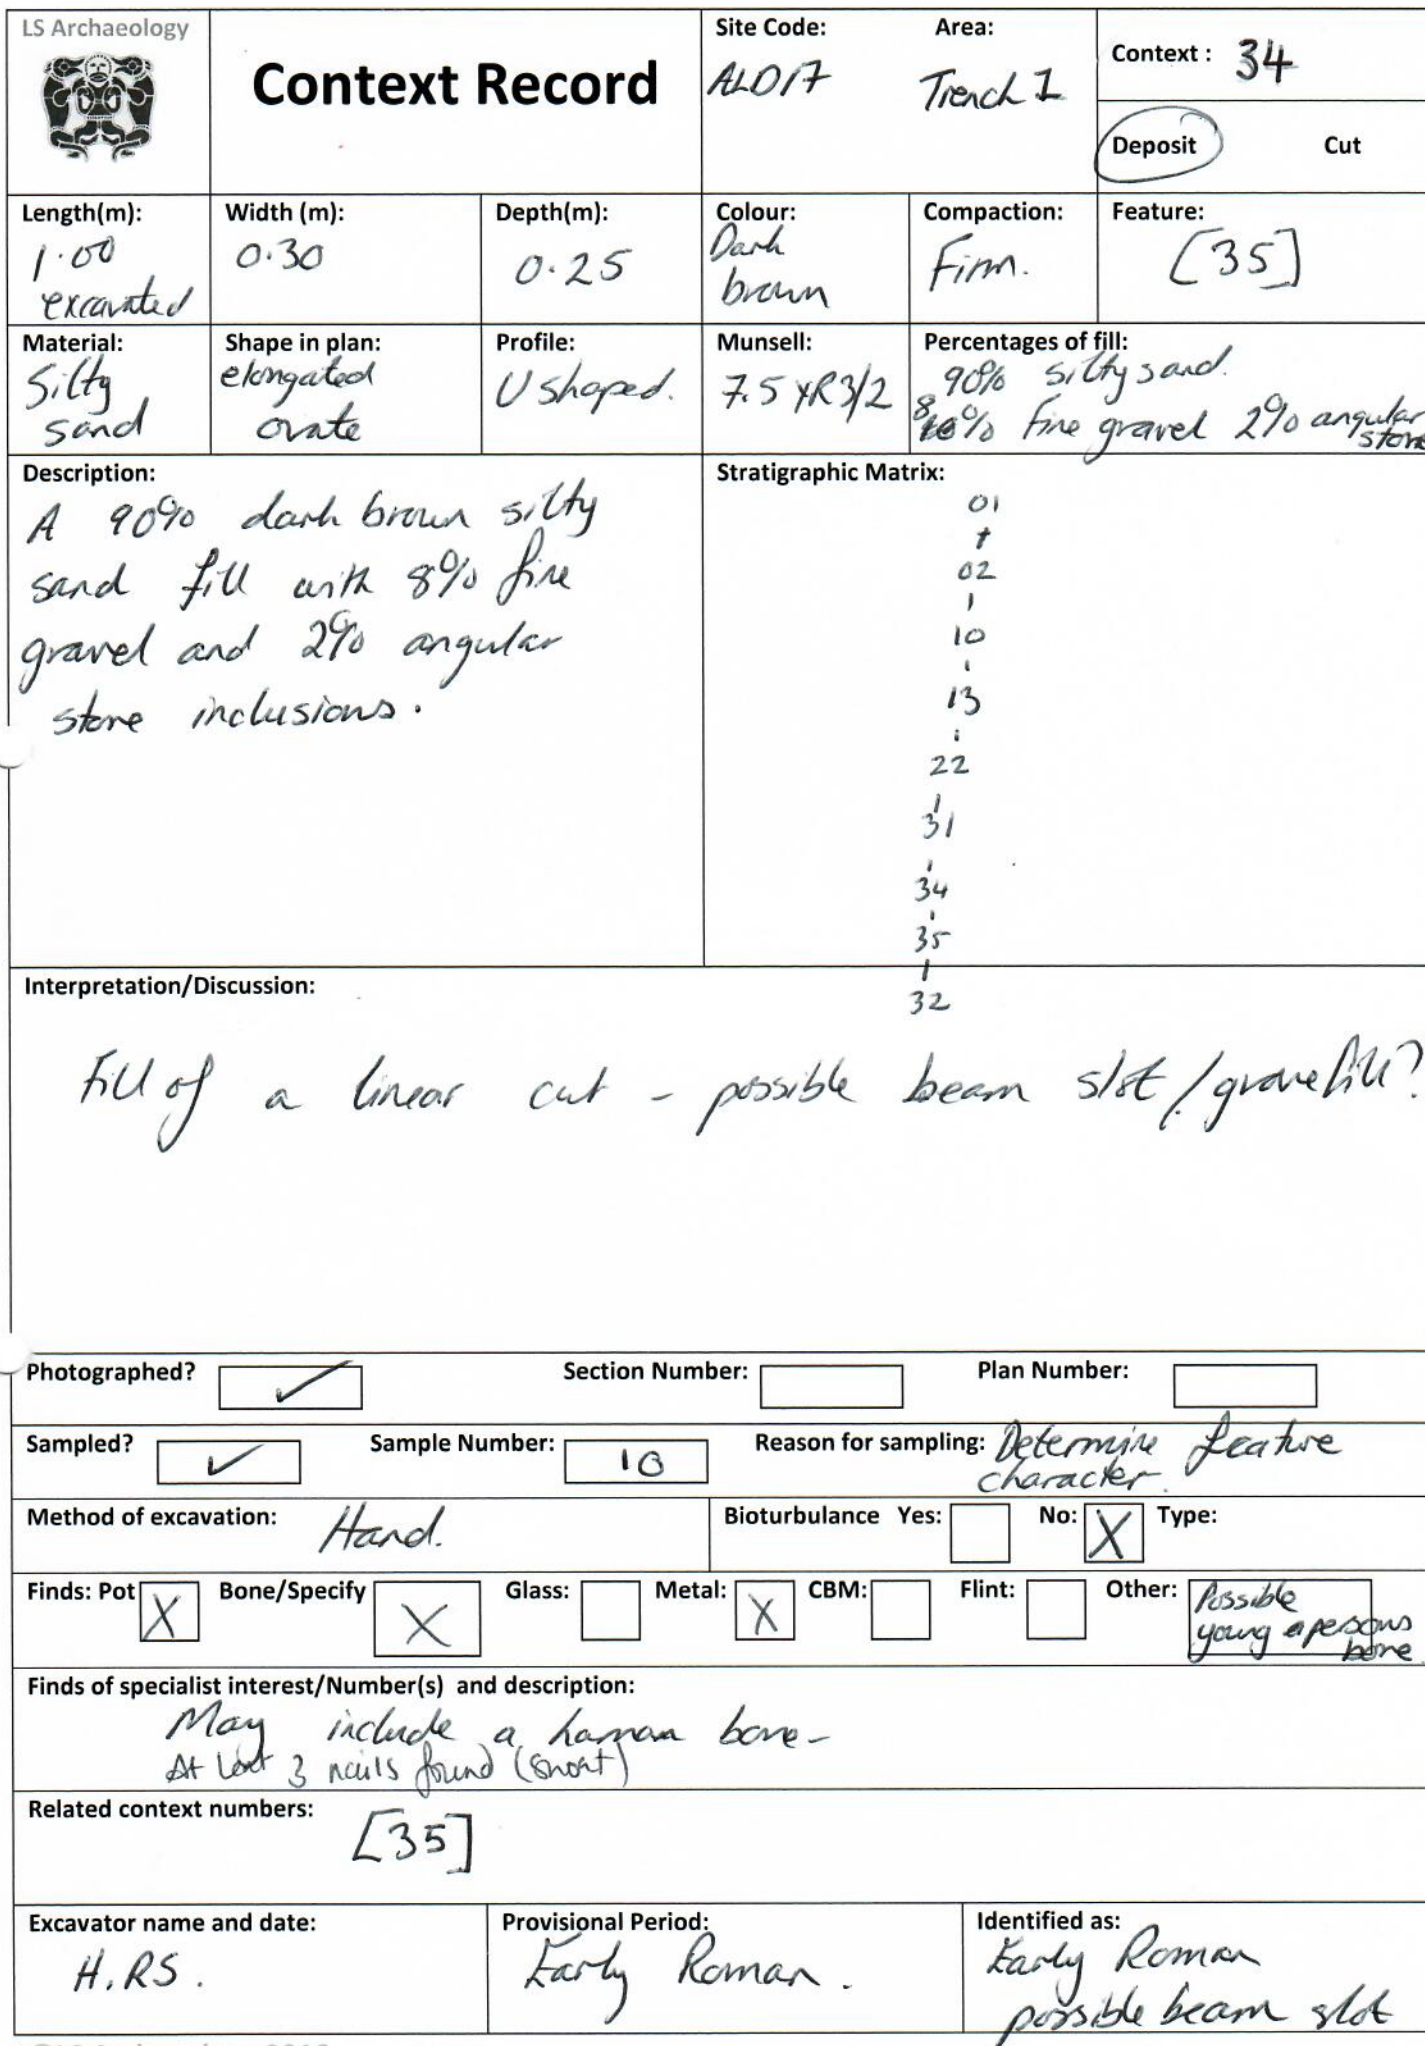 LS Archaeology
Context Record
Site Code:
ALD17
Area:
Trench 1
Context : 34
Deposit Cut
Length(m):
1.00
excavated
Width (m):
0.30
Depth(m):
0.25
Colour:
Dark
brown
Compaction:
Firm.
Feature:
[35]
Material:
Silty
sand
Shape in plan:
elongated
ovate
Profile:
U shaped.
Munsell:
7.5 YR 3/2
Percentages of fill:
90% silty sand.
8% fine gravel 2% angular
stone
Description:
A 90% dark brown silty
sand fill with 8% fine
gravel and 2% angular
stone inclusions.
Stratigraphic Matrix:
01
02
10
13
22
31
34
35
32
Interpretation/Discussion:
Fill of a linear cut - possible beam slot / grave fill?
Photographed? ✓ Section Number: Plan Number:
Sampled? ✓ Sample Number: 10 Reason for sampling: Determine feature
character.
Method of excavation: Hand.
Bioturbulance Yes: No: X Type:
Finds: Pot X Bone/Specify X Glass: Metal: X CBM: Flint: Other: Possible
young persons
bone
Finds of specialist interest/Number(s) and description:
May include a human bone-
At least 3 nails found (short)
Related context numbers:
[35]
Excavator name and date:
H.RS.
Provisional Period:
Early Roman.
Identified as:
Early Roman
possible beam slot